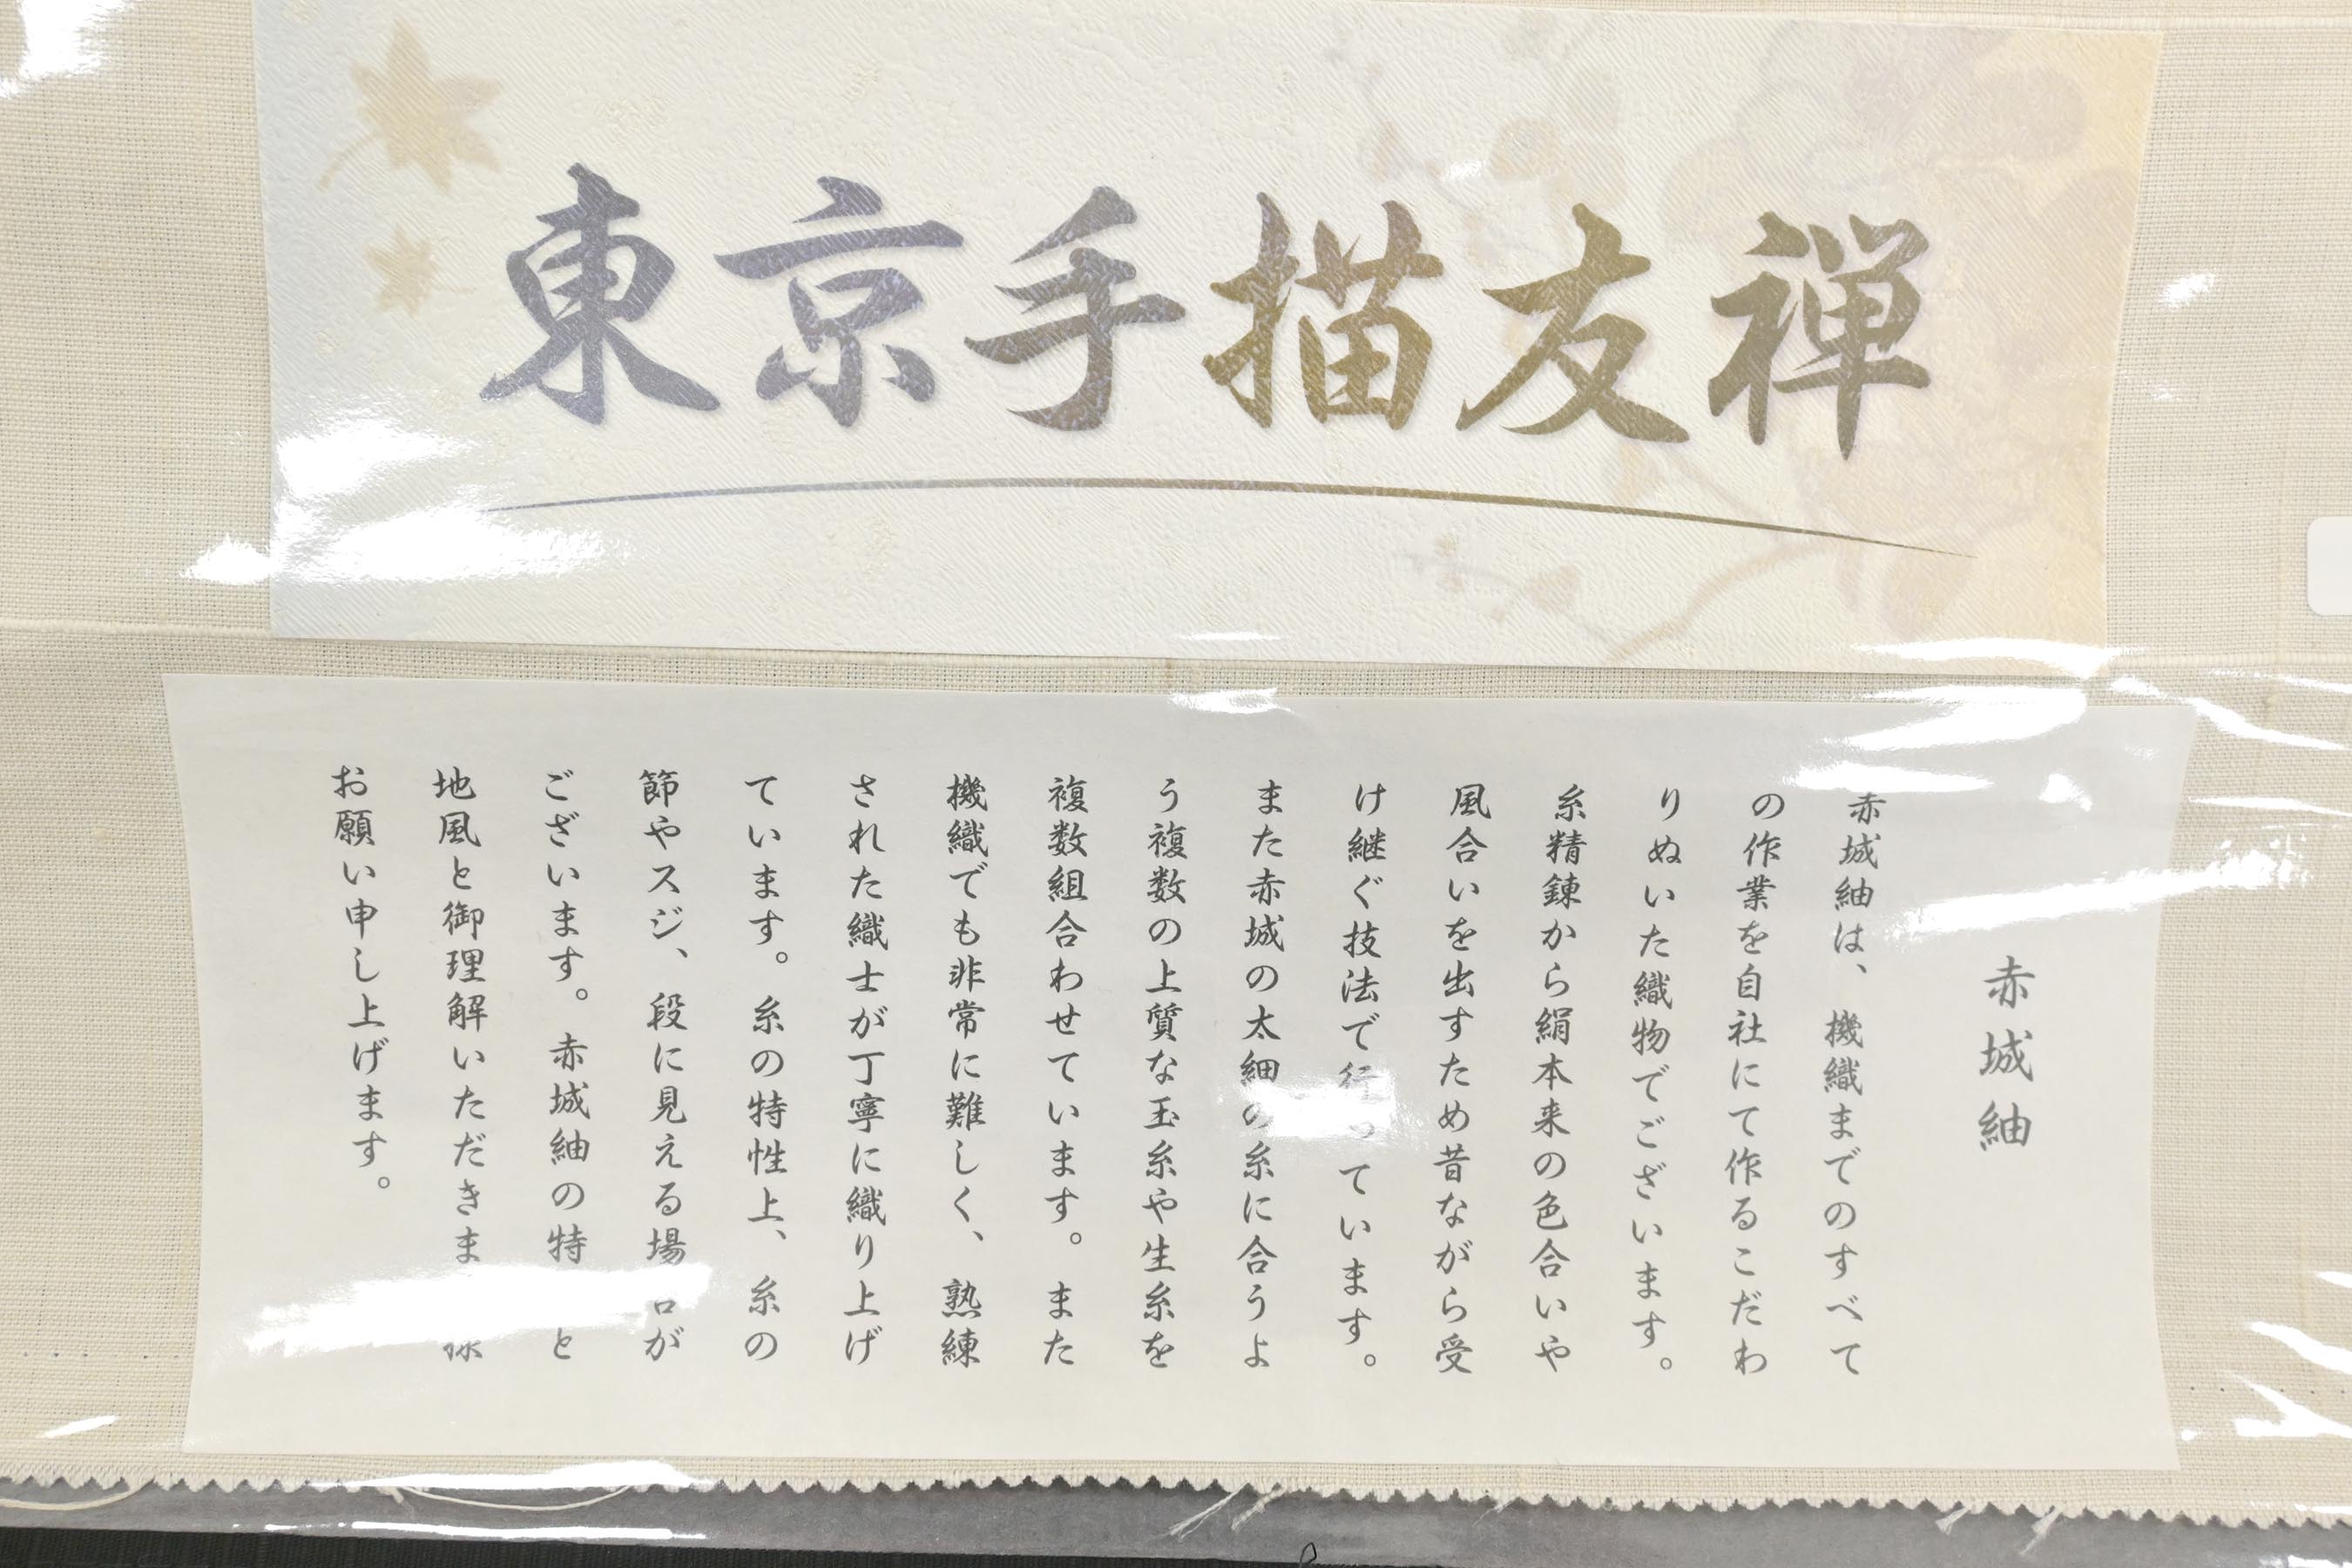 東京手描友禅
赤城紬
赤城紬は、機織までのすべて
の作業を自社にて作るこだわ
りぬいた織物でございます。
糸精錬から絹本来の色合いや
風合いを出すため昔ながら受
け継ぐ技法で行っています。
また赤城の太細の糸に合うよ
う複数の上質な玉糸や生糸を
複数組合わせています。また
機織でも非常に難しく、熟練
された織士が丁寧に織り上げ
ています。糸の特性上、糸の
節やスジ、段に見える場合が
ございます。赤城紬の特と
地風と御理解いただきま様
お願い申し上げます。